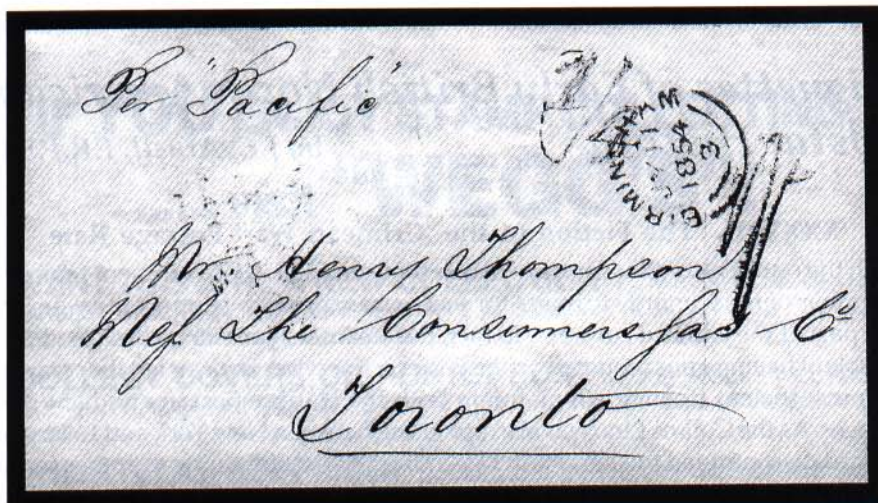 Per "Pacific"
BIRMINGHAM
1854
3
Mr Henry Thompson
The Consumers Gas Co
Toronto